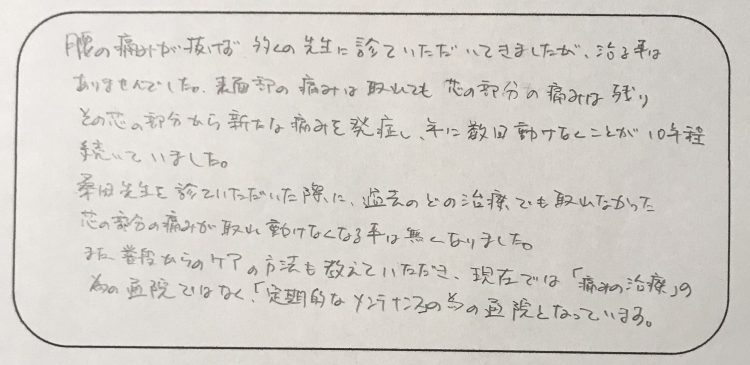 腰の痛みが抜けず 多くの先生に診ていただいてきましたが、治る事は
ありませんでした。表面部の痛みは取れても 芯の部分の痛みは残り
その芯の部分から新たな痛みを発症し、年に数回動けなくことが10年程
続いていました。
桑田先生を診ていただいた際に、過去のどの治療でも取れなかった
芯の部分の痛みが取れ動けなくなる事は無くなりました。
また普段からのケアの方法も教えていただき、現在では「痛みの治療」の
為の通院ではなく、「定期的なメンテナンスの為の通院となっています。